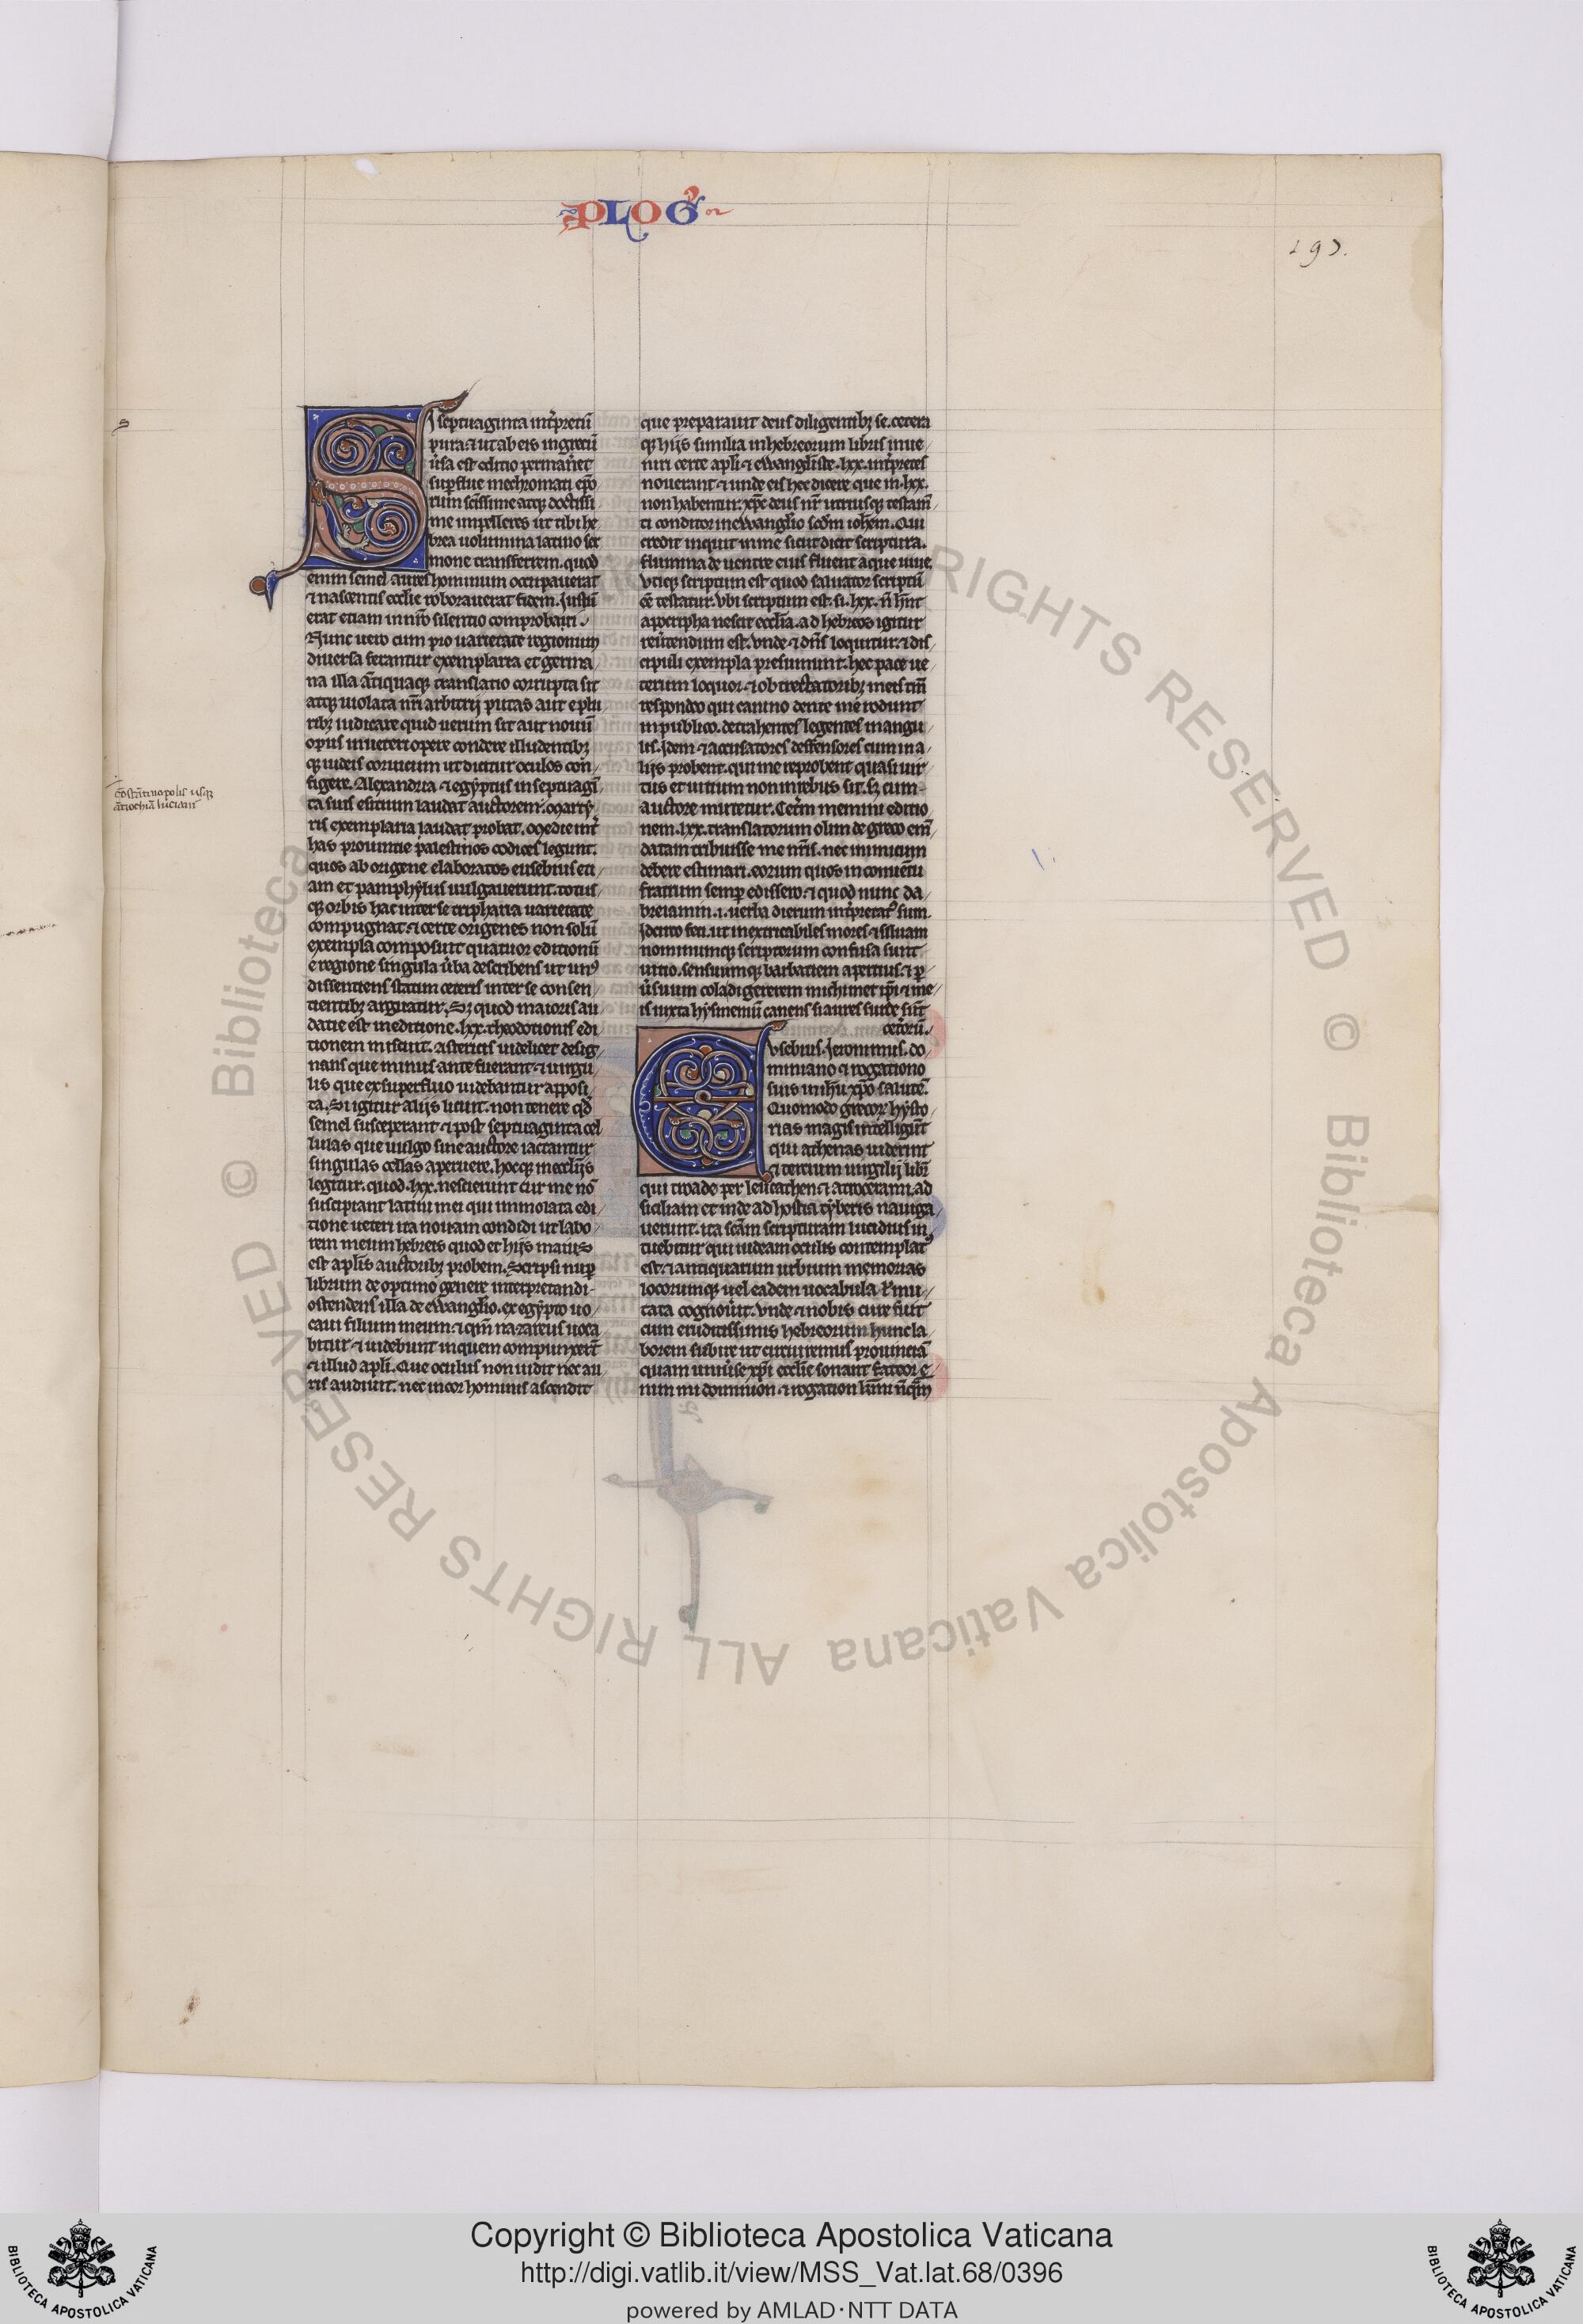 PLOG
197.
Si septuaginta int̓pretũ
pura ⁊ ut ab eis in grecũ
ũsa est editio permañet
supflue me chromati ep̃o
rum sc̃issime atqꝫ doctissi
me impelleres ut tibi he
brea uolumina latino ser
mone transferrem. quod
enim semel aures hominum occupauerat
⁊ nascentis ecclie roborauerat fidem. Justũ
erat etiam nnr̃o silentio comprobari.
Nunc uero cum pro uarietate regionum
diuersa ferantur exemplaria et germa
na illa ãtiquaqꝫ translatio corrupta sit
atqꝫ uiolata nr̃i arbitrij putas aut e plu
ribꝫ iudicare quid uerum sit aut nouũ
opus in ueteri opere condere illudentibꝫ
qꝫ iudeis cornicum ut dicitur oculos con
figere. Alexandria ⁊ egyptus in septuagĩ
ta suis esitium laudat auctorem. marty
ris exemplaria laudat probat. Medie int̓
has prouincie palestinos codices legunt.
quos ab origene elaboratos eusebius eti
am et pamphylus uulgauerunt. totus
qꝫ orbis hac inter se tripharia uarietate
compugnat. ⁊ certe origenes non solũ
exempla composuit quatuor editionũ
e regione singula ũba describens ut unꝰ
dissentiens statim ceteris inter se consen
tientibꝫ arguatur. Sꝫ quod maioris au
datie est in editione .lxx. theodotionis edi
tionem miscuit. Astericis uidelicet desig
nans que minus ante fuerant ⁊ uirgu
lis que ex superfluo uidebantur apposi
ta. Si igitur alijs licuit. non tenere qđ
semel susceperant ⁊ post septuaginta cel
lulas que uulgo sine auctore iactantur
singulas cellas aperuere. hocqꝫ in ecclijs
legitur. quod .lxx. nescierunt cur me nõ
suscipiant latini mei qui inuiolata edi
tione ueteri ita nouam condidi ut labo
rem meum hebreis quod et hijs maius
est aplis auctoribꝫ probem. Scripsi nup
librum de optimo genere interpretandi
ostendens illa de ewanglio. ex egypto uo
caui filium meum. ⁊ qm̃ nazareus uoca
bitur ⁊ uidebunt in quem compunxer̃t
⁊ illud apli. Que oculus non uidit nec au
ris audiuit. nec in cor hominis ascendit
que preparauit deus diligentibꝫ se. cetera
qꝫ hijs similia in hebreorum libris inue
niri certe apli ⁊ ewangliste .lxx. int̓pretes
nouerant ⁊ unde eis hec dicere que in .lxx.
non habentur. xp̃c deus nr̃ utriusqꝫ testam̃
ti conditor in ewanglio scd̃m ioh̃em. Qui
credit inquit in me sicut dicit scriptura.
flumina de uentre eius fluent aque uiue.
Vtiqꝫ scriptum est quod saluator scriptũ
eẽ testatur. Vbi scriptum est. si .lxx. ñ hñt
apocripha nescit ecclia. ad hebreos igitur
reũtendum est. Vnde ⁊ dñs loquitur. ⁊ dis
cipuli exempla presumunt. hec pace ue
terum loquor. ⁊ obtrectatoribꝫ meis tm̃
respondeo qui canino dente me rodunt
in publico. detrahentes legentes in angu
lis. Idem ⁊ accusatores deffensores cum in a
lijs probent. qui me reprobent quasi uir
tus et uitium non in rebus sit. sꝫ cum
auctore mutetur. Cet̓m memini editio
nem .lxx. translatorum olim de greco em̃
datam tribuisse me nr̃is. nec inimicum
debere estimari. eorum quos in conuẽtu
fratrum semp edissero. ⁊ quod nunc da
breiamin .i. uerba dierum int̓pretatꝰ sum.
Idcirco feci. ut inextricabiles mores ⁊ siluam
nominumqꝫ scriptorum confusa sunt
uitio. sensuumqꝫ barbariem apertius. ⁊ p
ũsuum cola digererem michimet ip̃i ⁊ me
is iuxta hysmenũ canens si aures surde sũt
cet̓orũ.
Eusebius. Jeronimus. do
miniano ⁊ rogationo
suis in ih̃u xp̃o salutẽ.
Quomodo grecoꝝ hysto
rias magis intelligũt
qui athenas uiderint
⁊ tercium uirgilij libr̃
qui troade per leucathen ⁊ acrocerann. ad
siciliam et inde ad hostia tyberis nauiga
uerunt. ita sc̃am scripturam lucidius in
tuebitur qui iudeam oculis contemplatꝰ
est. ⁊ antiquarum urbium memorias
locorumqꝫ uel eadem uocabula ł mu
tata cognoũit. Vnde ⁊ nobis cure fuit
cum eruditissimis hebreorum hunc la
borem subire ut circuiremus prouinciã
quam uniũse xp̃i ecclie sonant. fateor e
nim mi dominion ⁊ rogation kr̃mi ñqm̃
cõstãtinopolis usqꝫ
ãtiochiã luciani
© Biblioteca Apostolica Vaticana ALL RIGHTS RESERVED
© Biblioteca Apostolica Vaticana ALL RIGHTS RESERVED
Copyright © Biblioteca Apostolica Vaticana
http://digi.vatlib.it/view/MSS_Vat.lat.68/0396
powered by AMLAD·NTT DATA
BIBLIOTECA APOSTOLICA VATICANA
BIBLIOTECA APOSTOLICA VATICANA